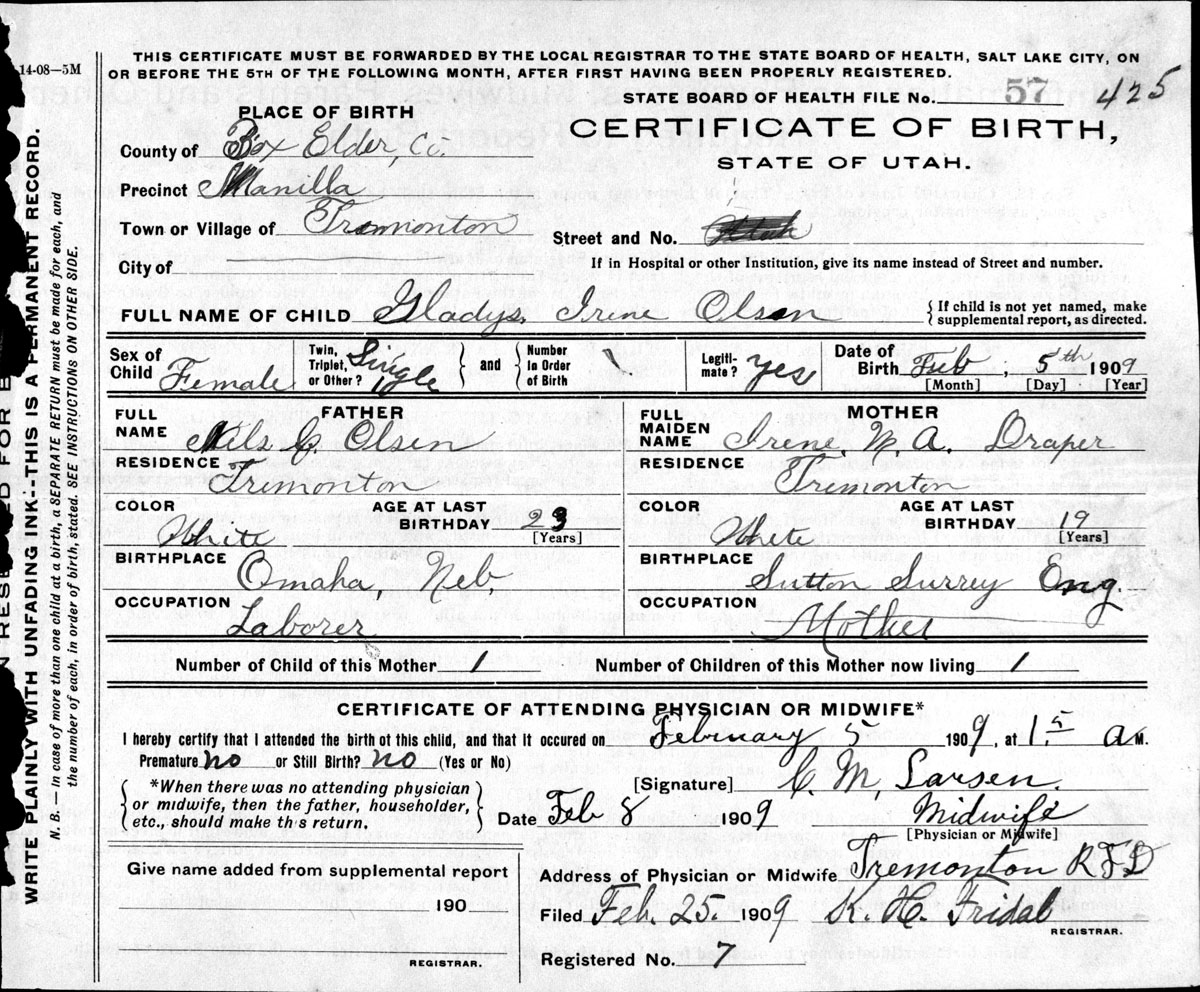 14-08—5M
THIS CERTIFICATE MUST BE FORWARDED BY THE LOCAL REGISTRAR TO THE STATE BOARD OF HEALTH, SALT LAKE CITY, ON
OR BEFORE THE 5TH OF THE FOLLOWING MONTH, AFTER FIRST HAVING BEEN PROPERLY REGISTERED.
STATE BOARD OF HEALTH FILE No. 57 425
PLACE OF BIRTH
CERTIFICATE OF BIRTH,
STATE OF UTAH.
County of Box Elder, Co.
Precinct Manilla
Town or Village of Tremonton
Street and No.
City of
If in Hospital or other Institution, give its name instead of Street and number.
FULL NAME OF CHILD Gladys, Irene Olsen
{If child is not yet named, make supplemental report, as directed.
Sex of Child Female
Twin, Triplet, or Other? Single } and { Number in Order of Birth
Legiti-mate? Yes
Date of Birth Feb, 5th 1909
[Month] [Day] [Year]
FATHER
FULL NAME Nils C. Olsen
RESIDENCE Tremonton
COLOR White
AGE AT LAST BIRTHDAY 23
[Years]
BIRTHPLACE Omaha, Neb,
OCCUPATION Laborer
MOTHER
FULL MAIDEN NAME Irene. W. A. Draper
RESIDENCE Tremonton
COLOR White
AGE AT LAST BIRTHDAY 19
[Years]
BIRTHPLACE Sutton Surrey Eng.
OCCUPATION Mother
Number of Child of this Mother 1 Number of Children of this Mother now living 1
CERTIFICATE OF ATTENDING PHYSICIAN OR MIDWIFE*
I hereby certify that I attended the birth of this child, and that it occured on February 5 1909, at 1.5 a M.
Premature no or Still Birth? no (Yes or No)
[Signature] C. M, Larsen.
{ *When there was no attending physician
or midwife, then the father, householder,
etc., should make this return. }
Date Feb 8 1909 Midwife
[Physician or Midwife]
Give name added from supplemental report
190
REGISTRAR.
Address of Physician or Midwife Tremonton RFD
Filed Feb. 25. 1909 K. H. Fridal
REGISTRAR.
Registered No. 7
WRITE PLAINLY WITH UNFADING INK--THIS IS A PERMANENT RECORD.
N. B.— In case of more than one child at a birth, a SEPARATE RETURN must be made for each, and
the number of each, in order of birth, stated. SEE INSTRUCTIONS ON OTHER SIDE.